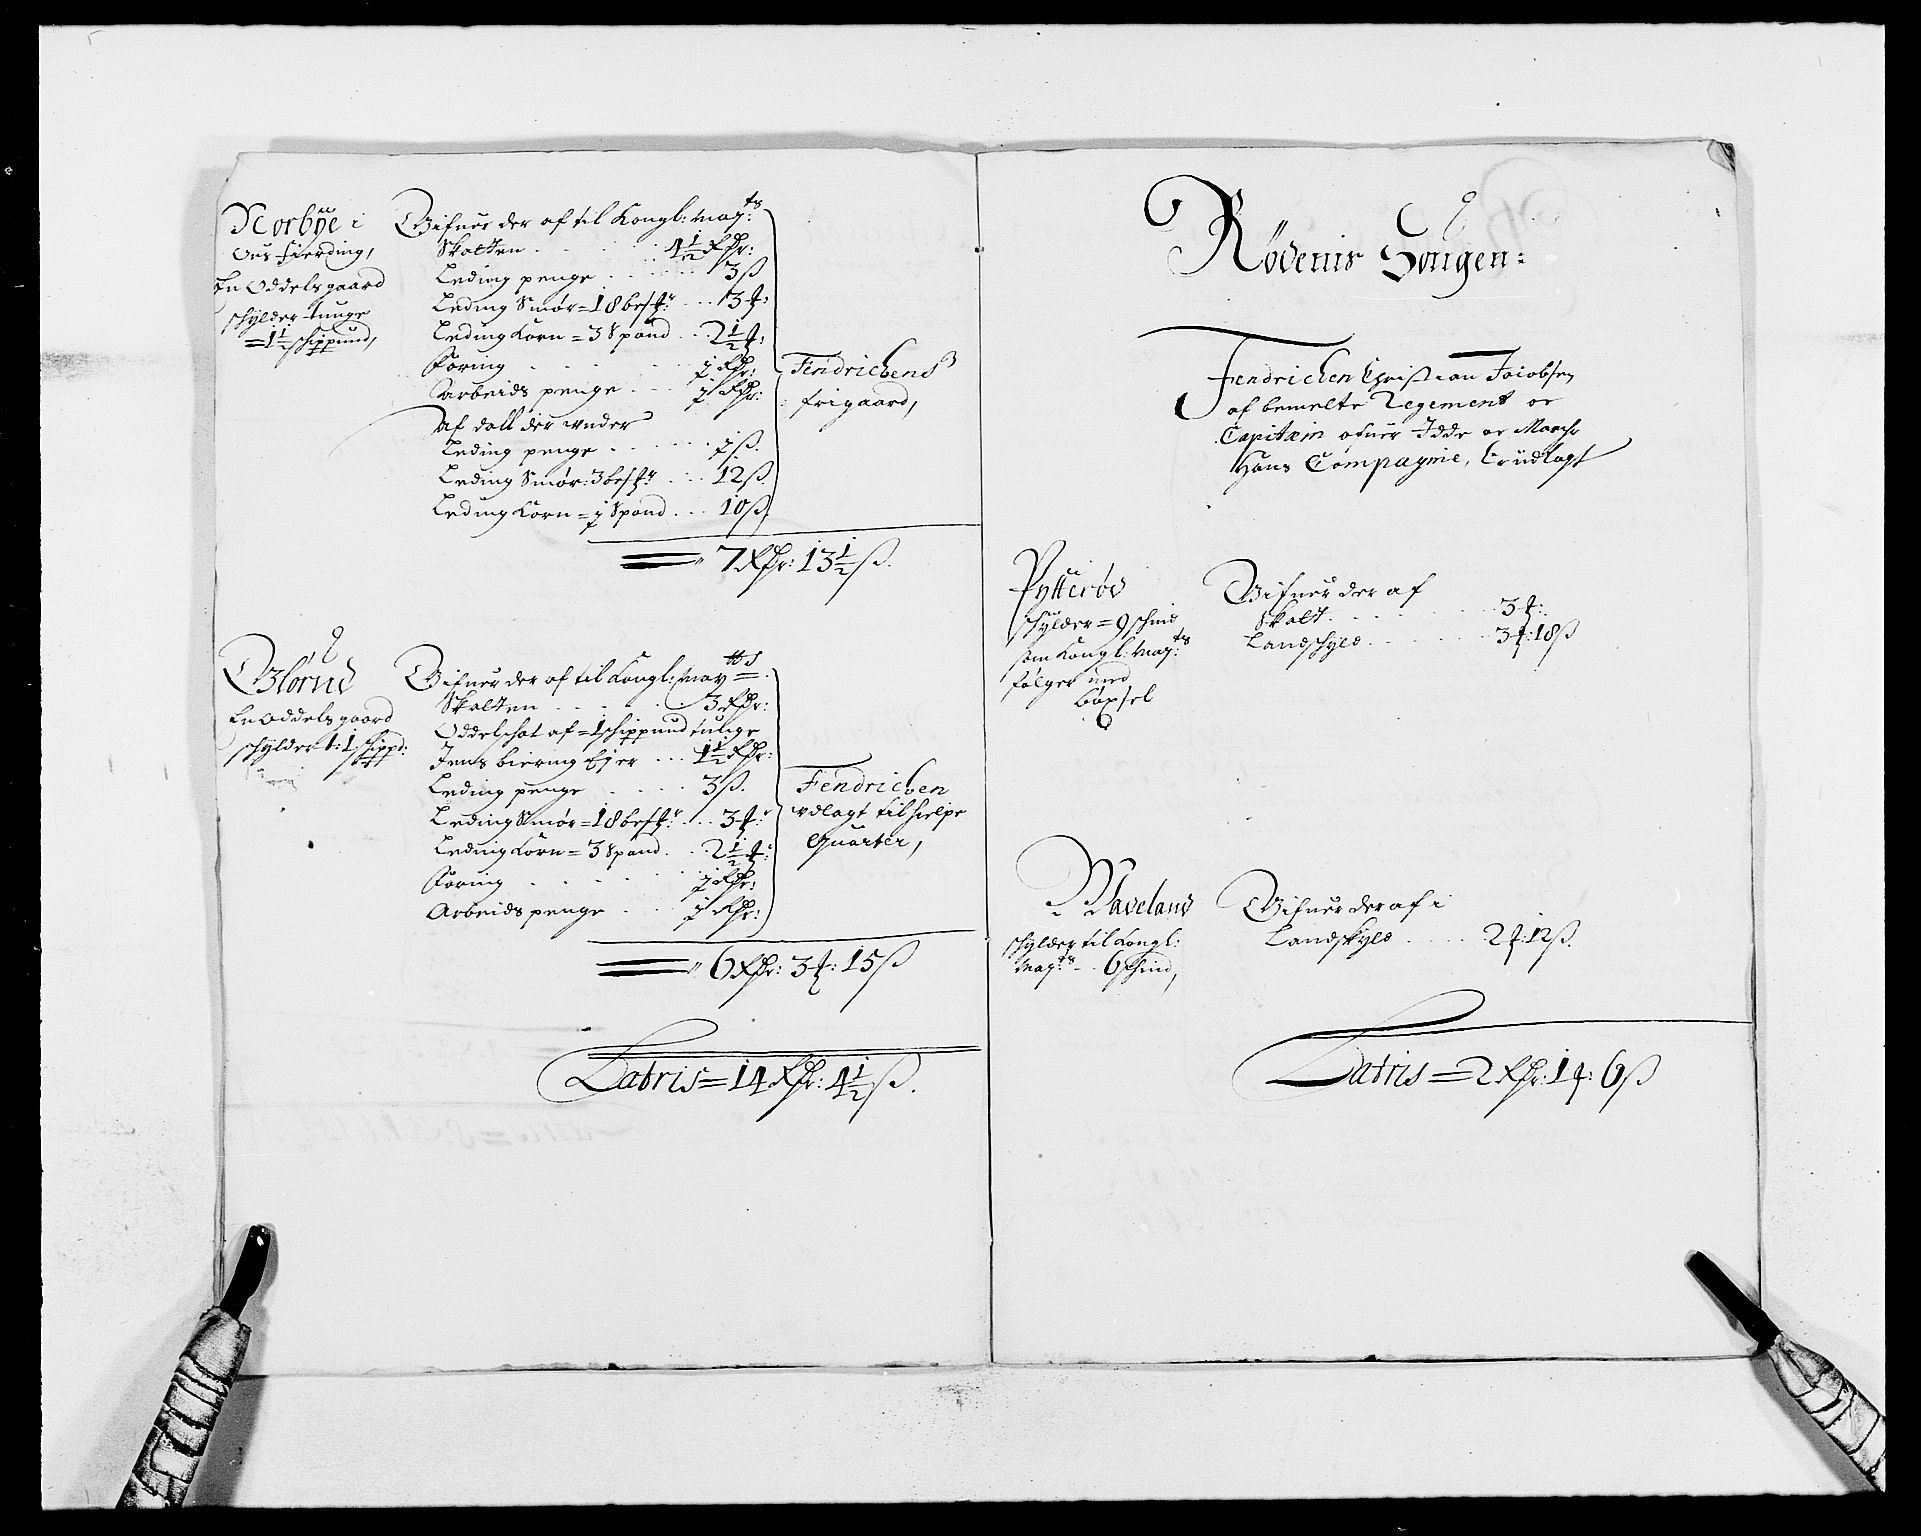 Norbÿe i
Ous fierding,
En Oddels gaard
schÿlder tunge
= 1½ schippund,
Gifuer der af til Kongl: May:ts
Skatten . . . . 4½ Rdr:
Leding penge . . . . 3 ß
Leding Smør = 18 besmr: . . . 3 ƒ:
Leding Korn = 3 Spand . . 2½ ƒ:
Foring . . . . j Rdr:
Arbeids penge . . . j Rdr:
Af dall der under
Leding penge . . . . j ß.
Leding Smør: 3 besmr: . . . 12 ß.
Leding Korn = j Spand . . . 10 ß.
Fendrichens
frigaard,
= 7 Rdr: 13½ ß.
Glørud
En Oddels gaard
schÿlder t: 1 schippd:
Gifuer der af til Kongl: May tts
Skatten . . . . 3 Rdr:
Oddelschat af = 1 schippund tunge
Jens biering Ejer . . . 1½ Rdr:
Leding penge . . . . 3 ß.
Leding Smør = 18 besmr: . . . 3 ƒ:
Leding Korn = 3 Spand . . 2½ ƒ:
Foring . . . . j Rdr:
Arbeids penge . . . j Rdr:
Fendrichen
udlagt til hielpe
Quarter,
= 6 Rdr: 3 ƒ: 15 ß
Latris = 14 Rdr: 4½ ß.
Rødenis Sougen:
Fendrichen Christian Jacobsen
af bemelte Regement oc
Capitain ofuer Idde oc March
Hans Compagnie, Er üdlagt
Pytterød
schÿlder = 9 schind
som Kongl: May:ts
følger med
böxsel
Gifuer der af
Skatt . . . . 3 ƒ:
Landschyld . . . . 3 ƒ: 18 ß
Waveland
schÿlder til Kongl:
May:ts - 6 schind,
Gifuer der af i
Landskyld . . . . 2 ƒ: 12 ß.
Latris = 2 Rdr: 1 ƒ: 6 ß